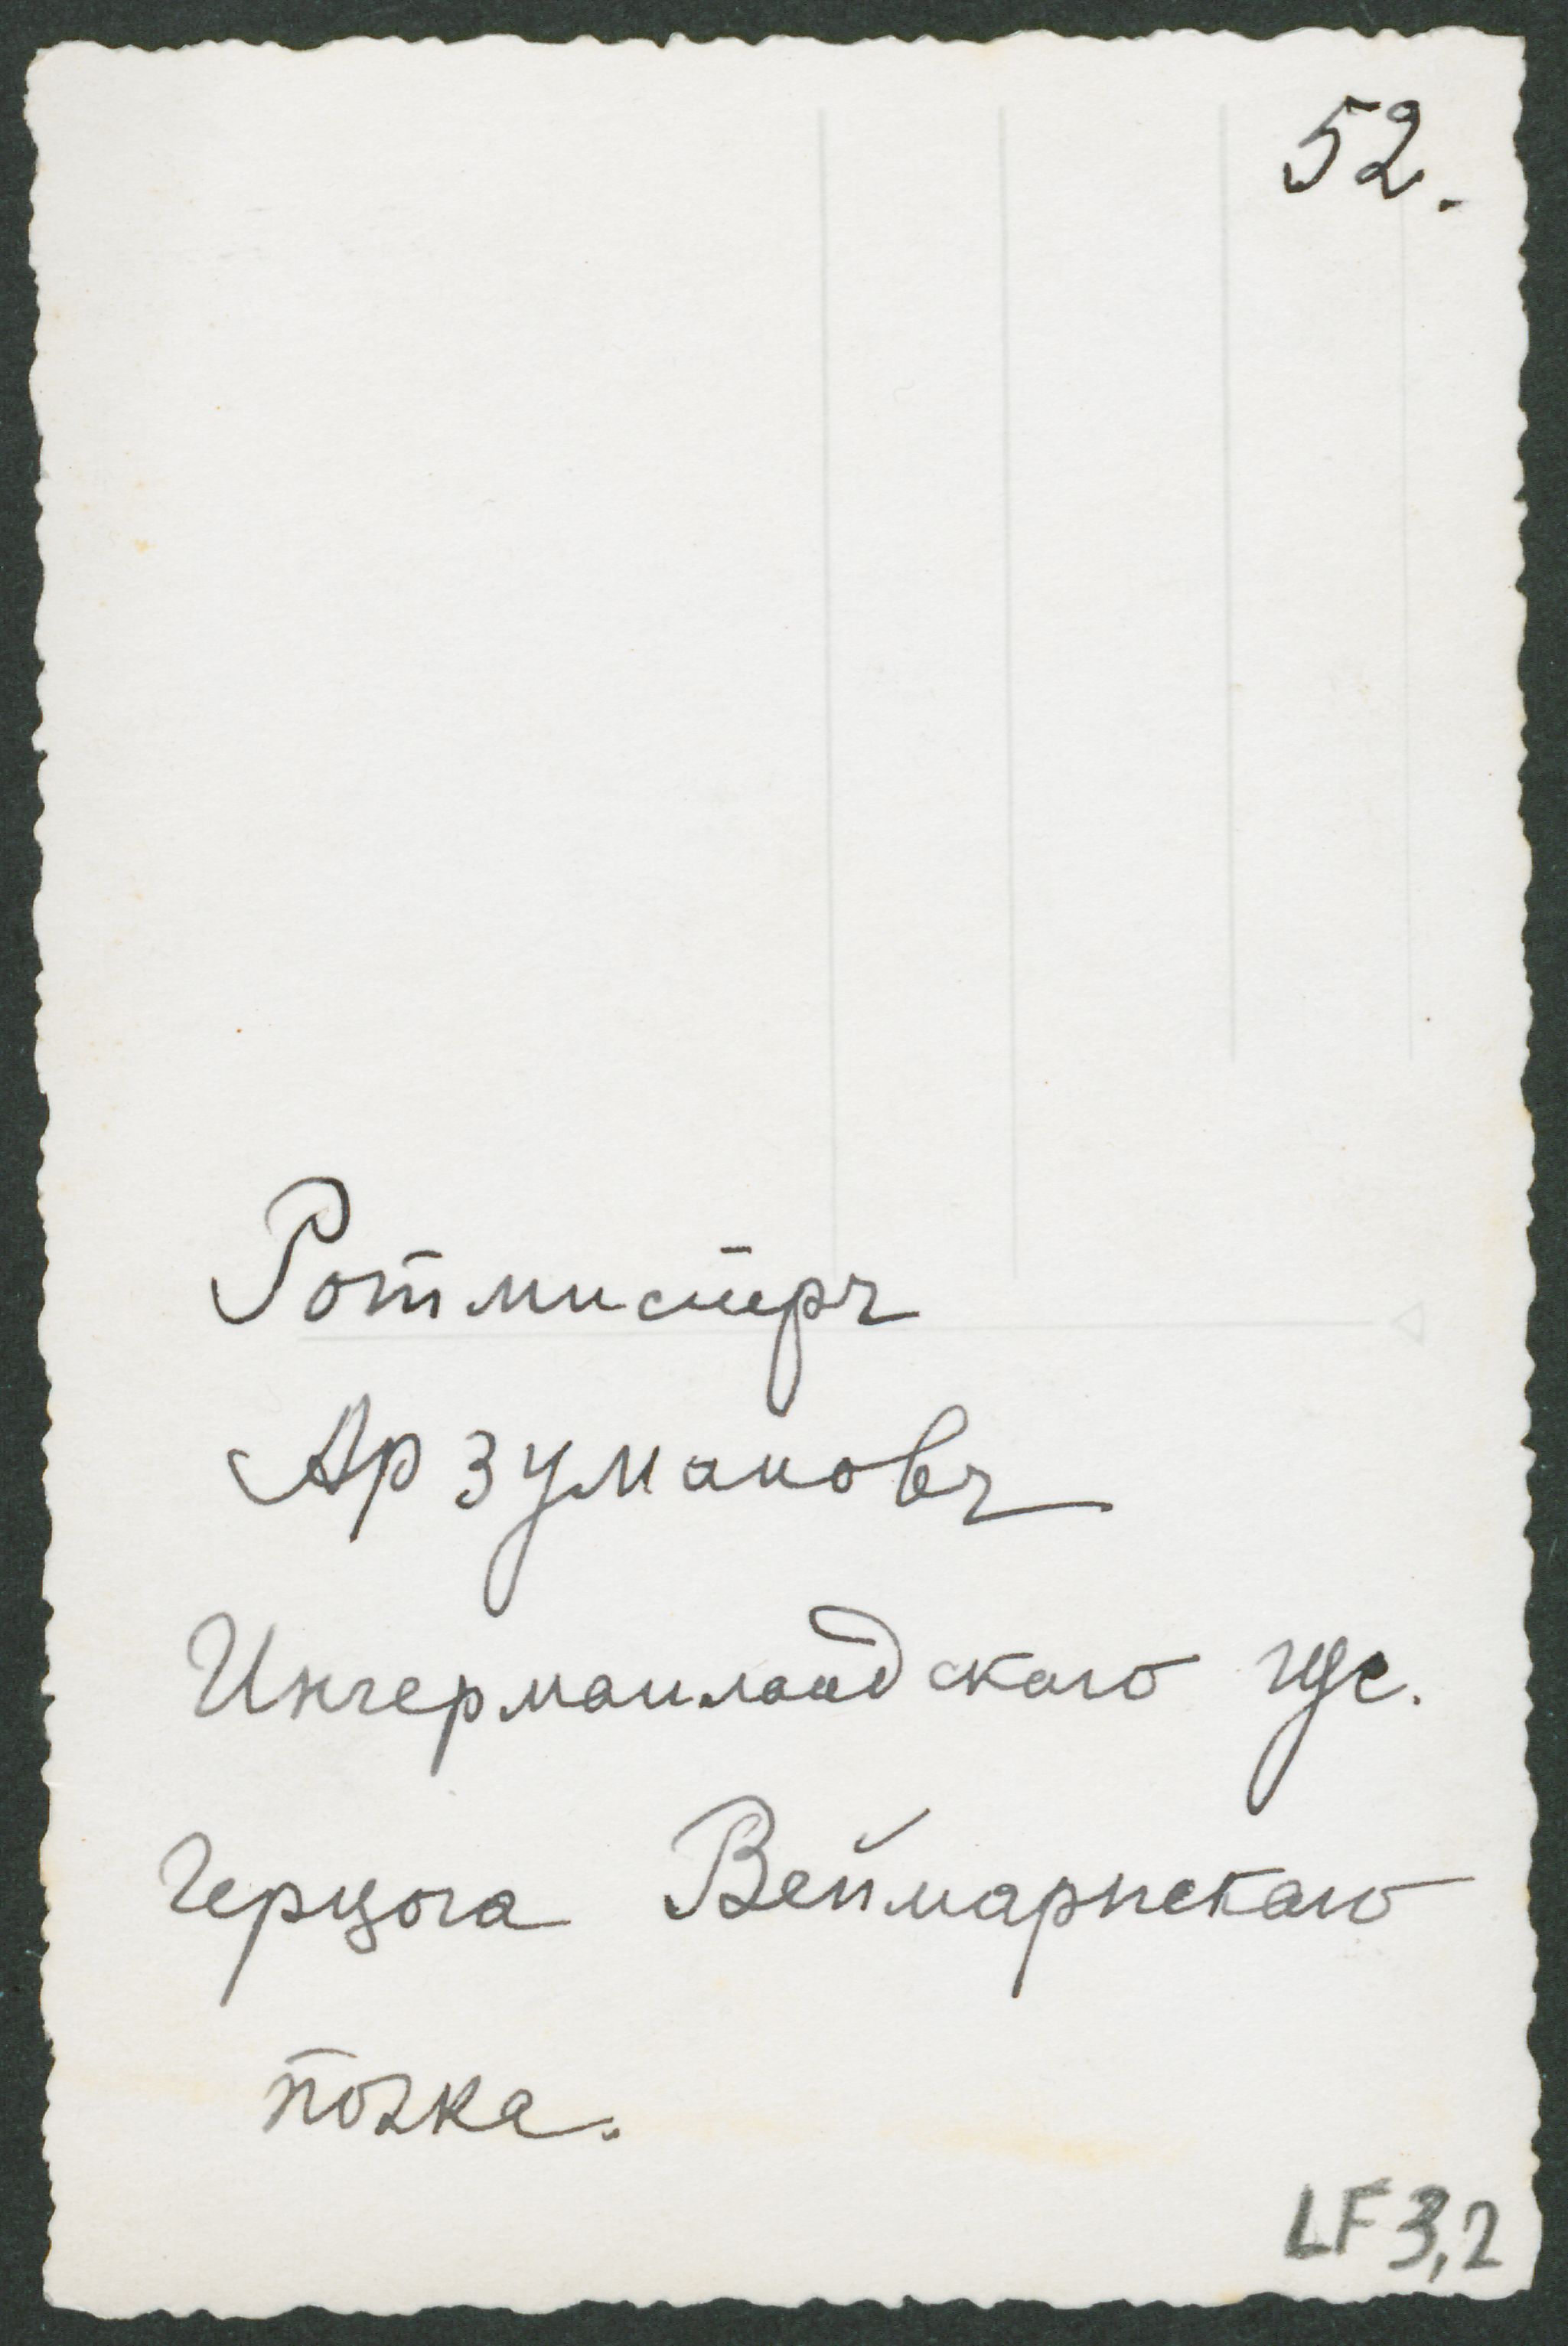 52.
Ротмистръ
Арзумановъ
Ингерманландскаго гус.
Герцога Веймарнскаго
полка.
LF 3,2